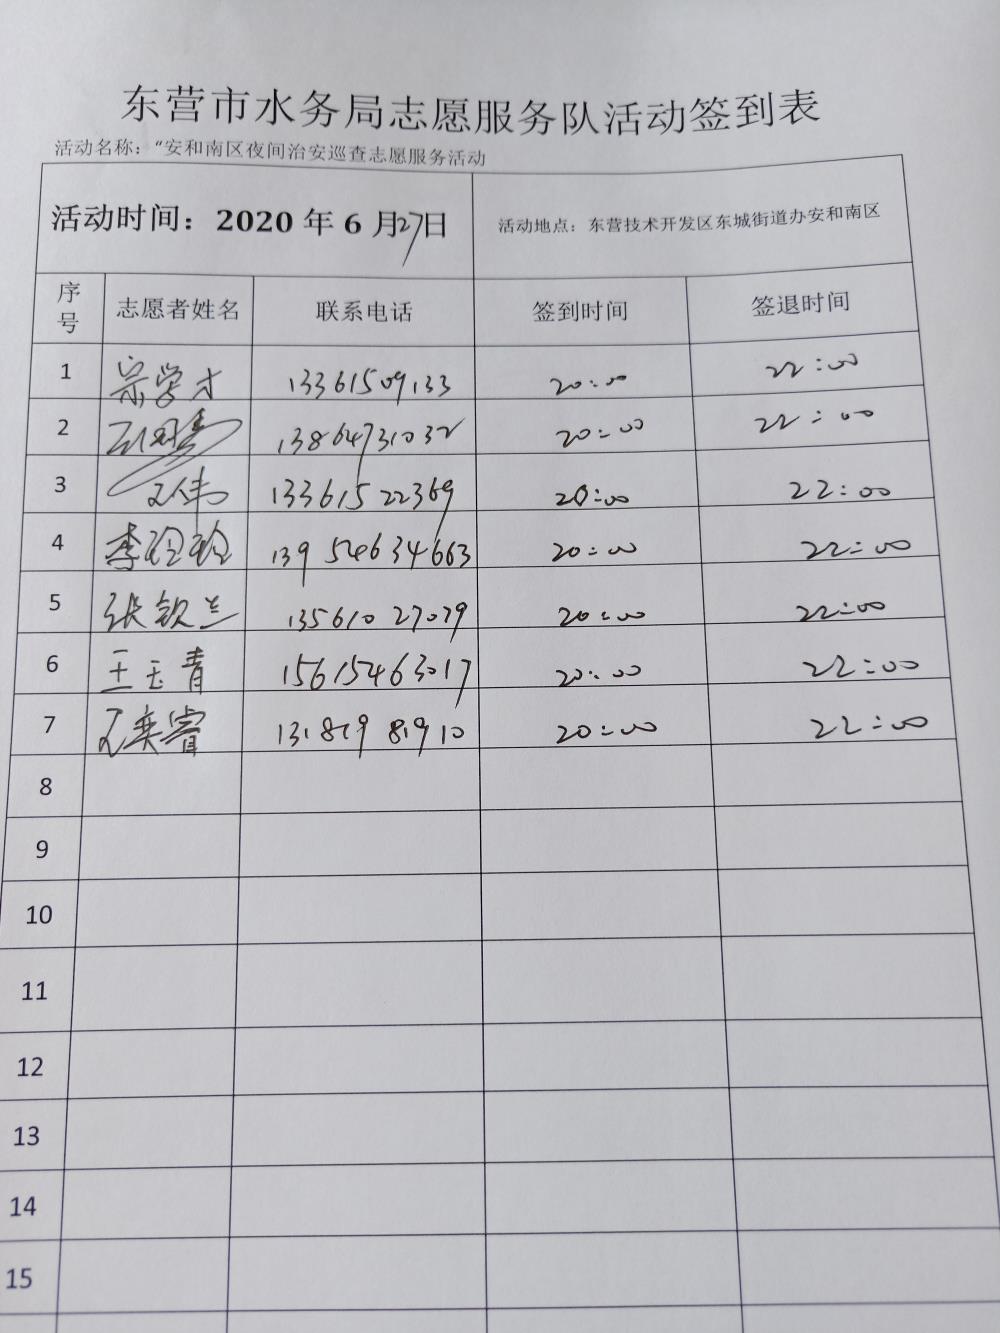 东营市水务局志愿服务队活动签到表
活动名称：“安和南区夜间治安巡查志愿服务活动
活动时间：2020 年 6 月27日 活动地点：东营技术开发区东城街道办安和南区
序号 志愿者姓名 联系电话 签到时间 签退时间
1 宗学才 13361509133 20:00 22:00
2 13864731032 20:00 22:00
3 王伟 13361522369 20:00 22:00
4 李玲玲 13954634663 20:00 22:00
5 张钦兰 13561027079 20:00 22:00
6 王玉青 15615463017 20:00 22:00
7 石奕睿 13181981910 20:00 22:00
8
9
10
11
12
13
14
15